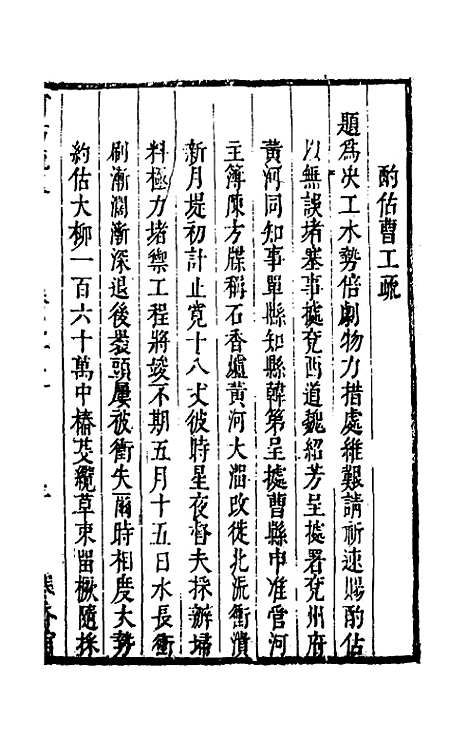 酌估曹工疏
題爲決工水勢倍劇物力措處維艱請祈速賜酌估
以無誤堵塞事據兗西道魏紹芳呈據署兗州府
黃河同知事單縣知縣韓第呈據曹縣申准管河
主簿陳方牒稱石香爐黃河大溜改徙北流衝潰
新月堤初計止寬十八丈彼時星夜督夫採辦埽
料極力堵禦工程將竣不期五月十五日水長衝
刷漸濶漸深退後裹頭屢被衝失爾時相度大勢
約估大柳一百六十萬中樁芟纜草束留橛隨採